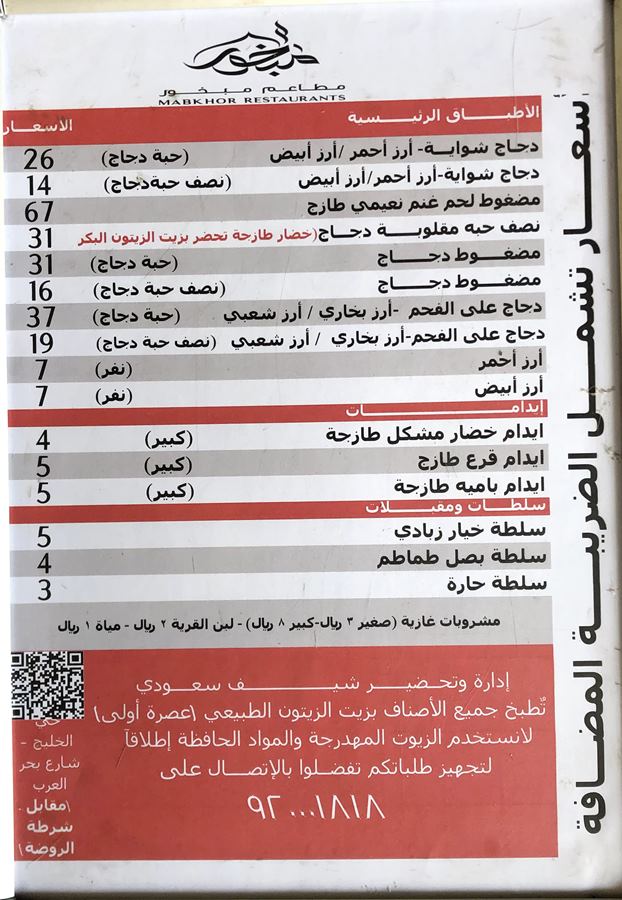 مبخور
مطاعم مبخور
MABKHOR RESTAURANTS
الأطباق الرئيسية الأسعار
دجاج شواية- أرز أحمر /أرز أبيض (حبة دجاج) 26
دجاج شواية-أرز أحمر/أرز أبيض (نصف حبةدجاج) 14
مضغوط لحم غنم نعيمي طازج 67
نصف حبه مقلوبة دجاج(خضار طازجة تحضر بزيت الزيتون البكر 31
مضغوط دجاج (حبة دجاج) 31
مضغوط دجاج (نصف حبة دجاج) 16
دجاج على الفحم -أرز بخاري / أرز شعبي (حبة دجاج) 37
دجاج على الفحم-أرز بخاري / أرز شعبي (نصف حبة دجاج) 19
أرز أحمر (نفر) 7
أرز أبيض (نفر) 7
إيدامات
ايدام خضار مشكل طازجة (كبير) 4
ايدام قرع طازج (كبير) 5
ايدام باميه طازجة (كبير) 5
سلطات ومقبلات
سلطة خيار زبادي 5
سلطة بصل طماطم 4
سلطة حارة 3
مشروبات غازية (صغير ٣ ريال-كبير ٨ ريال) - لبن القرية ٢ ريال - مياة ١ ريال
إدارة وتحضير شيف سعودي
تُطبخ جميع الأصناف بزيت الزيتون الطبيعي \عصرة أولى\
لانستخدم الزيوت المهدرجة والمواد الحافظة إطلاقاً
لتجهيز طلباتكم تفضلوا بالإتصال على
٩٢٠٠٠١٨١٨
حي
الخليج -
شارع بحر
العرب
\مقابل
شرطة
الروضة\
سعار تشمل الضريبة المضافة